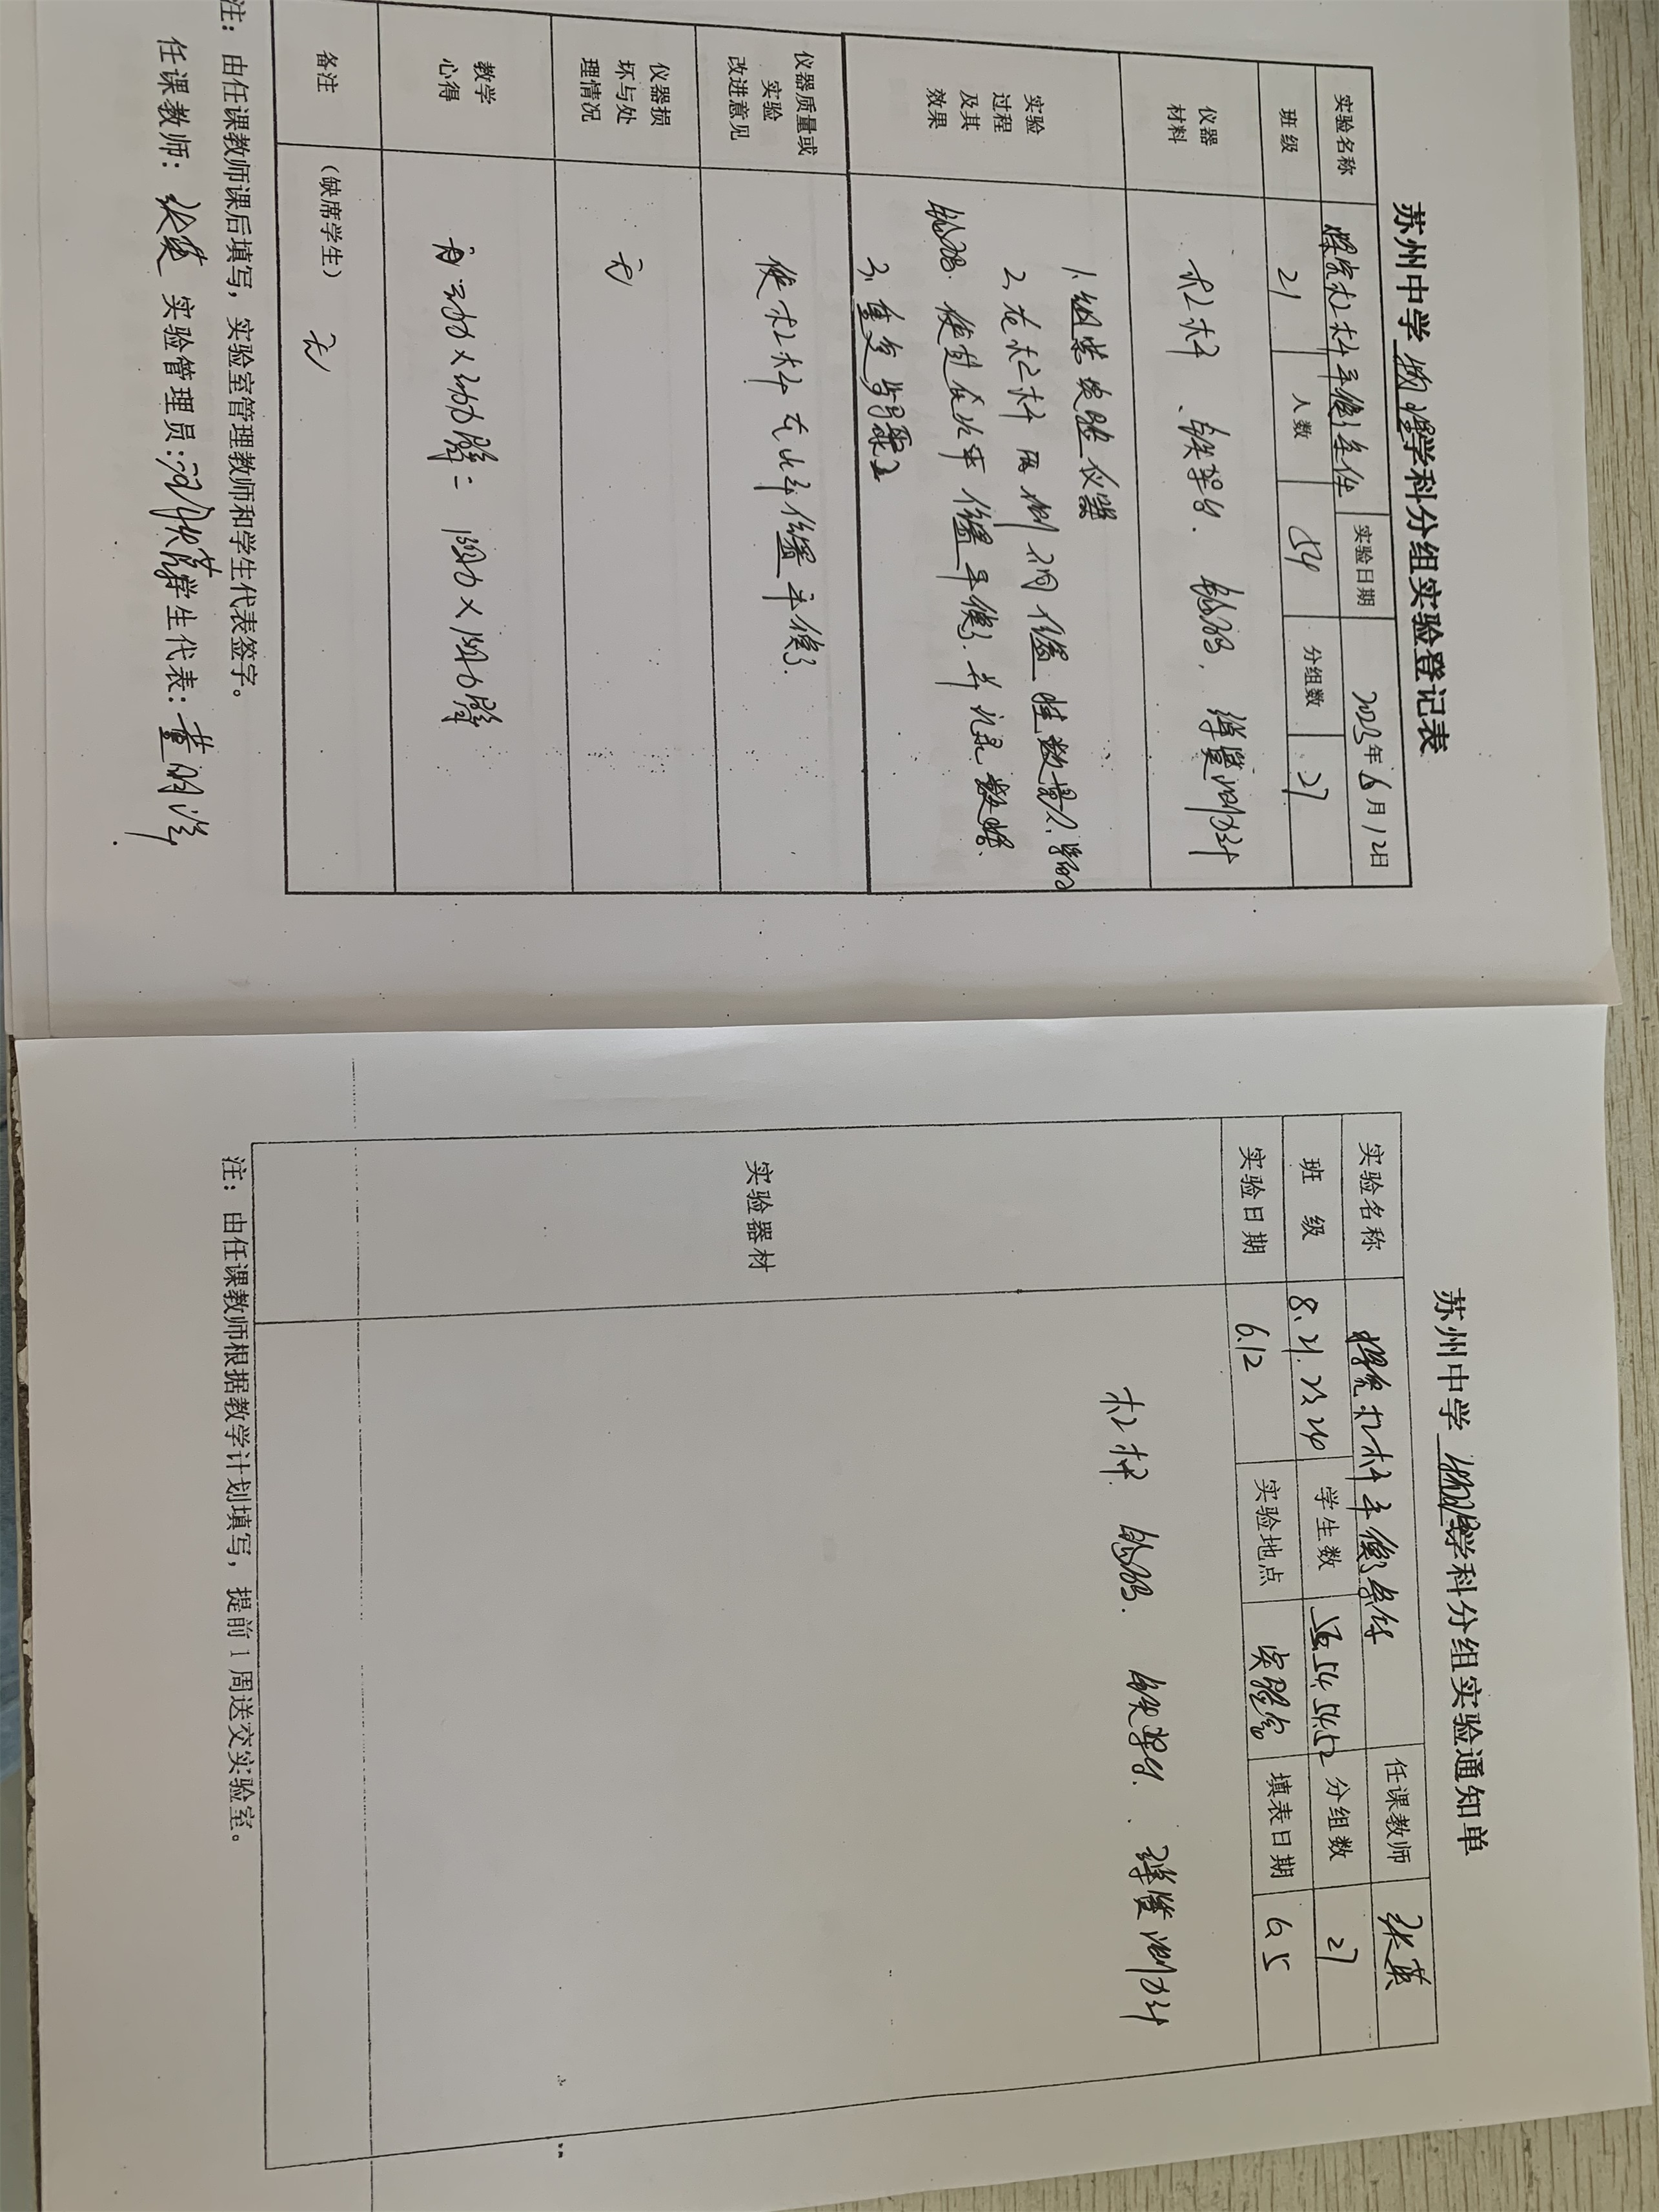 苏州中学 物理学科分组实验登记表
实验名称 探究杠杆平衡条件 实验日期 2023年6月12日
班级 21 人数 54 分组数 27
仪器材料 杠杆、铁架台、钩码、弹簧测力计
实验过程及其效果 1.组装实验仪器
2、在杠杆两侧不同位置挂数量不等的
钩码.使其在水平位置平衡.并记录数据.
3、重复步骤2
仪器质量或实验改进意见 使杠杆在水平位置平衡.
仪器损坏与处理情况 无
教学心得 动力×动力臂=阻力×阻力臂
备注 (缺席学生) 无
注:由任课教师课后填写,实验室管理教师和学生代表签字。
任课教师: 张英 实验管理员: 学生代表: 董
苏州中学 物理学科分组实验通知单
实验名称 探究杠杆平衡条件 任课教师 张英
班 级 8.21.23.24 学生数 56.54.54.52 分组数 27
实验日期 6.12 实验地点 实验室 填表日期 6.5
实验器材 杠杆. 钩码. 铁架台. 弹簧测力计
注:由任课教师根据教学计划填写,提前1周送交实验室。